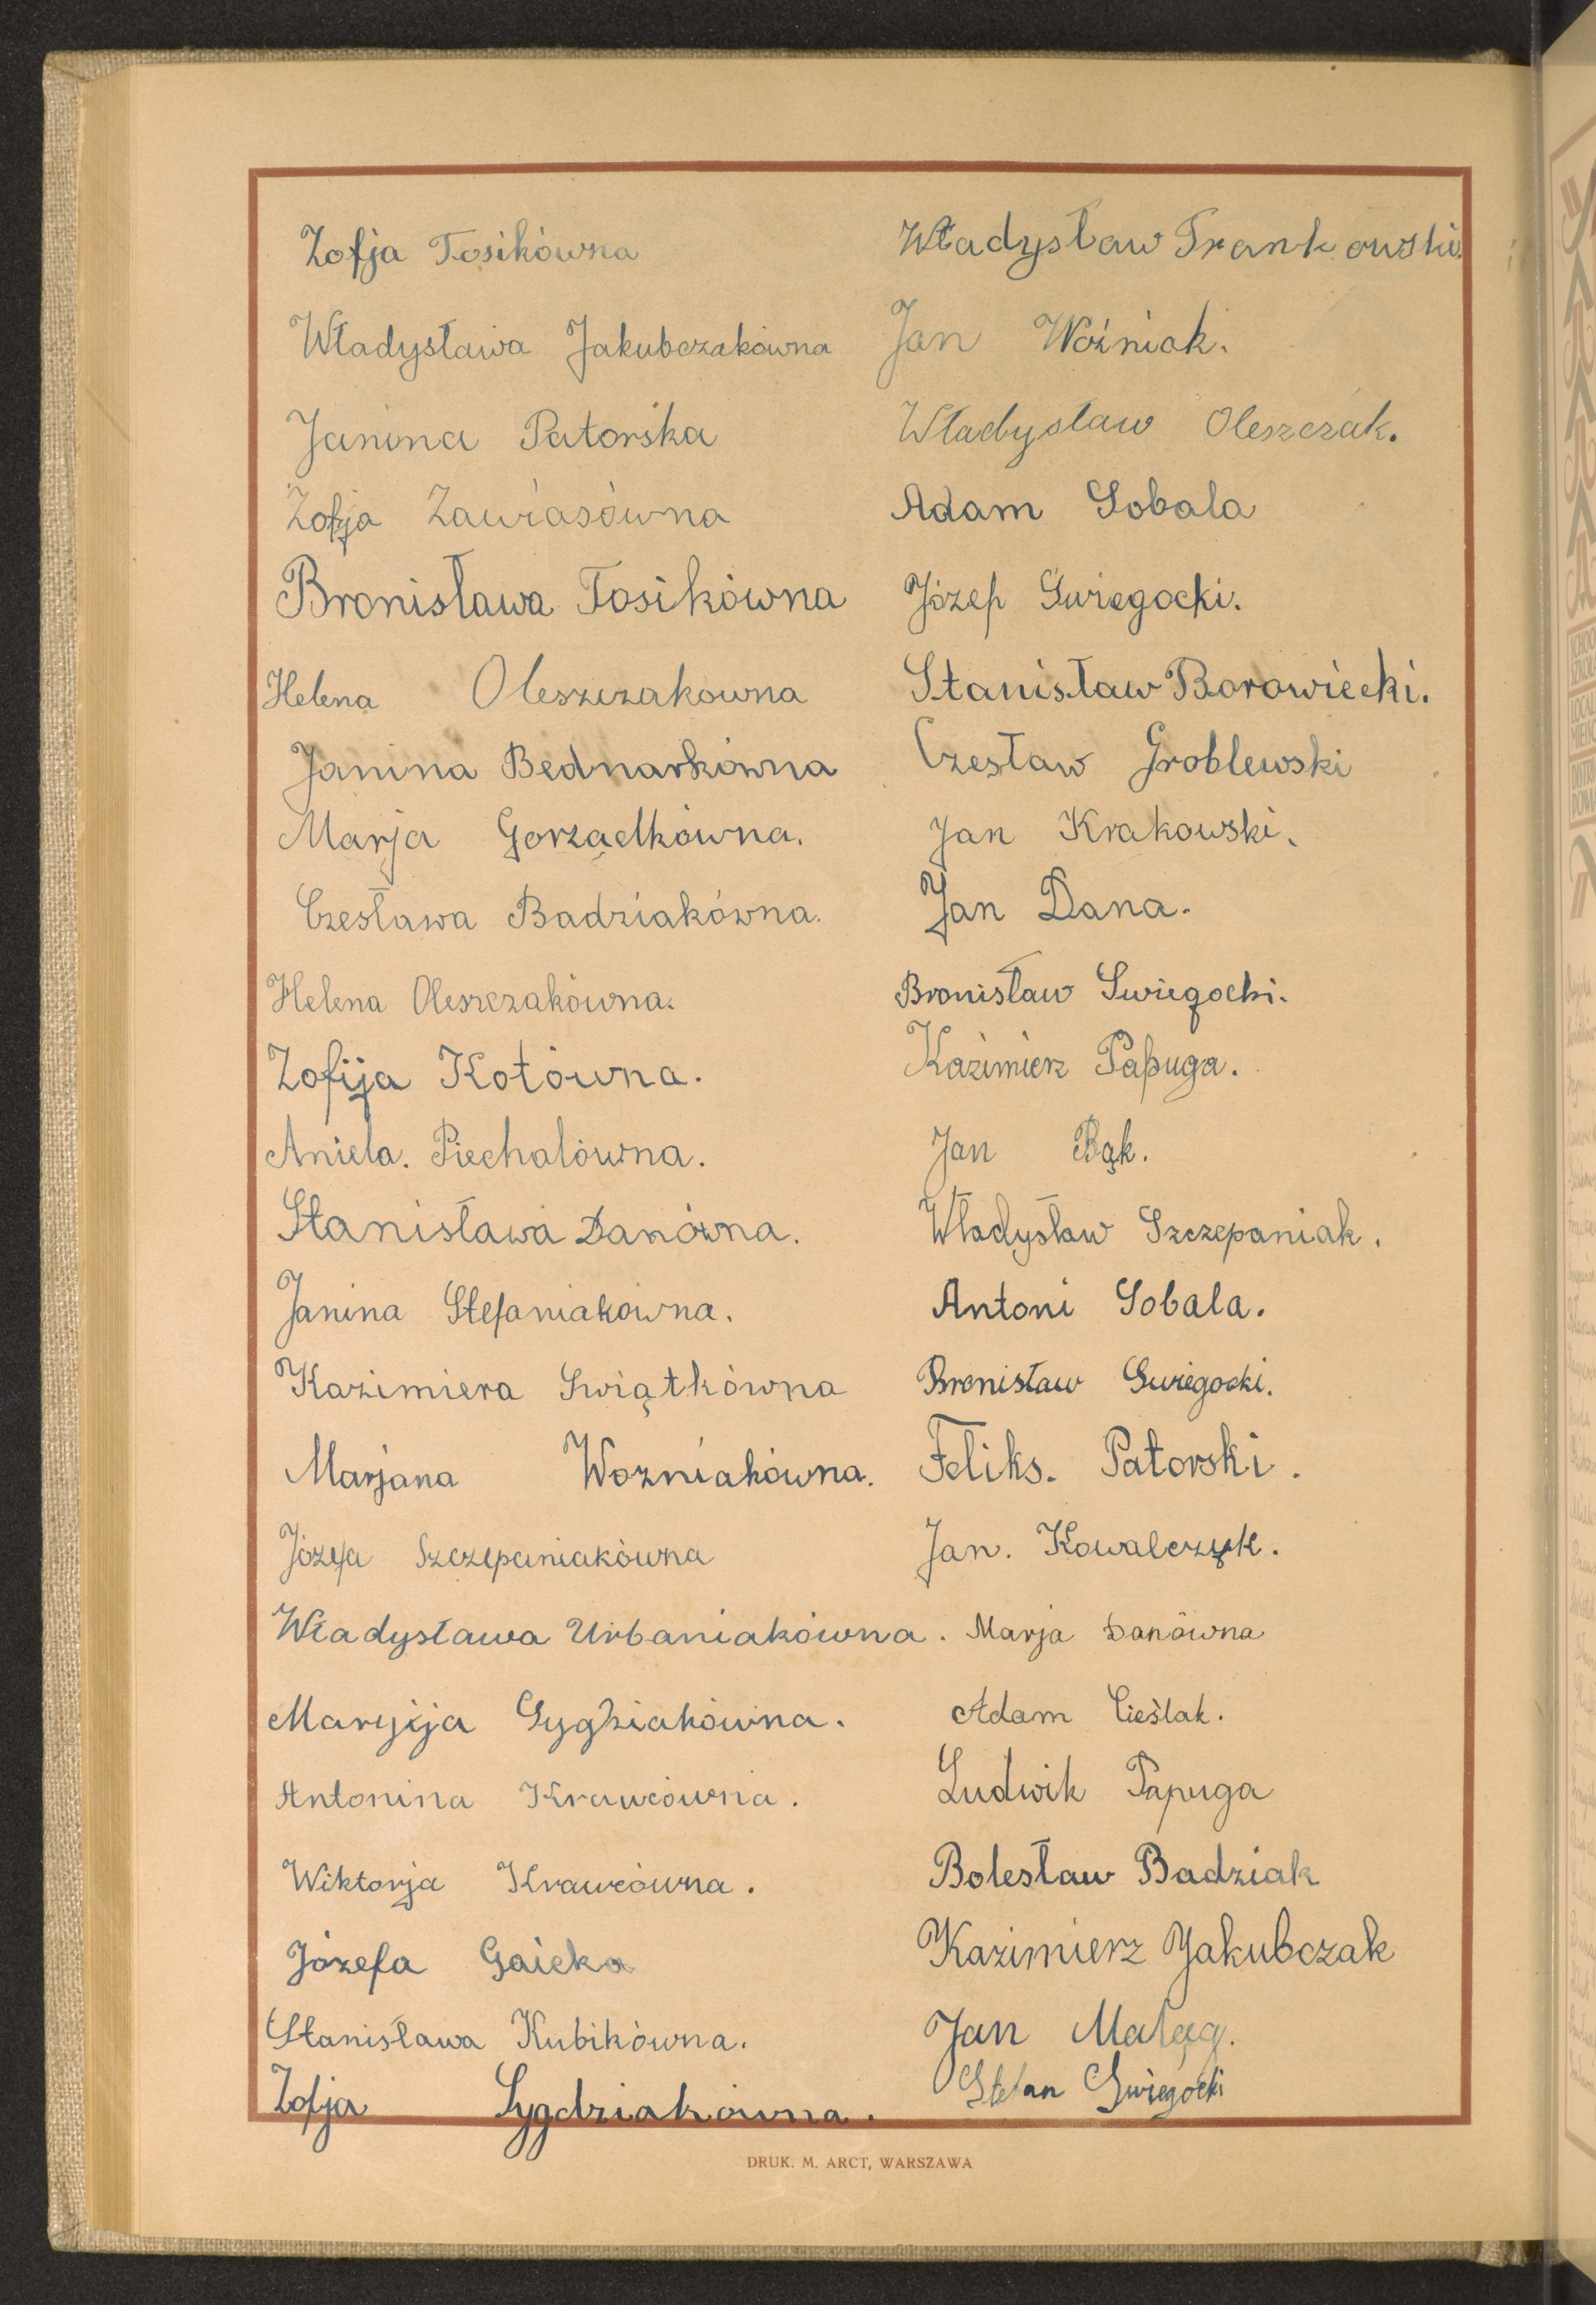 Zofja Tosikówna
Władysława Jakubczakówna
Janina Patorska
Zofja Zawiasówna
Bronisława Tosikówna
Helena Oleszczakowna
Janina Bednarkówna
Marja Gorządkówna.
Czesława Badziakówna.
Helena Oleszczakówna.
Zofija Kotówna.
Aniela. Piechalówna.
Stanisława Danówna.
Janina Stefaniakówna.
Kazimiera Swiątkówna
Marjana Wozniakówna.
Józefa Szczepaniakówna
Władysława Urbaniakówna.
Maryija
Antonina Krawcówna.
Wiktorja Krawcówna.
Józefa Gaicka
Stanisława Kubikówna.
Zofja Sygdziakówna.
Władysław Frankowski.
Jan Woźniak.
Władysław Oleszczak.
Adam Sobala
Józef Swiegocki.
Stanisław Borowiecki.
Czesław Groblewski
Jan Krakowski.
Jan Dana.
Bronisław Swiegocki.
Kazimierz Papuga.
Jan Bąk.
Władysław Szczepaniak.
Antoni Sobala.
Bronisław Swiegocki.
Feliks. Patorski.
Jan. Kowalczyk.
Marja Danówna
Adam Cieślak.
Ludwik Papuga
Bolesław Badziak
Kazimierz Jakubczak
Jan
Stefan Swiegocki
DRUK. M. ARCT, WARSZAWA